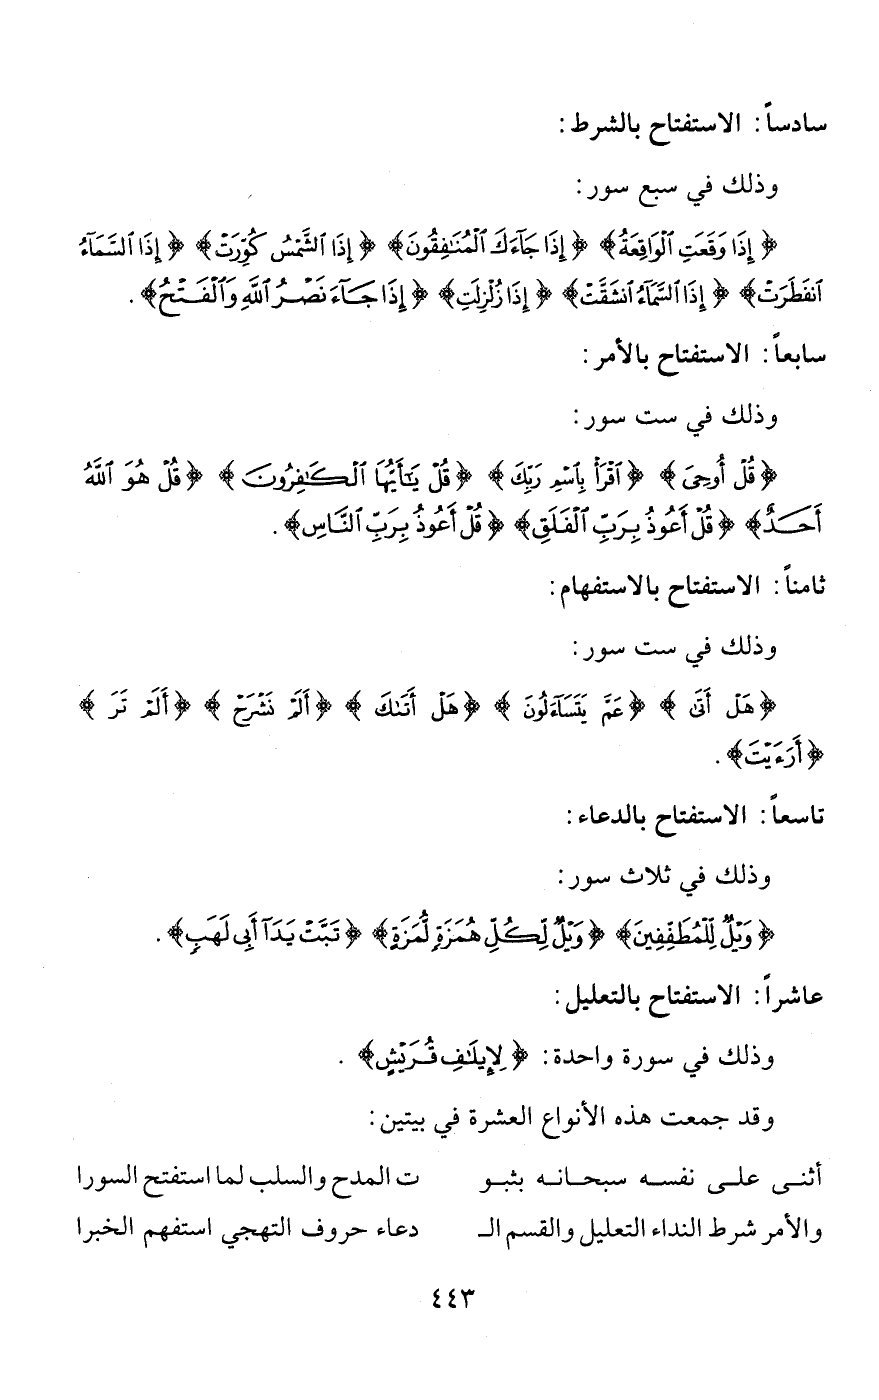 سادساً: الاستفتاح بالشرط:
وذلك في سبع سور:
﴿إِذَا وَقَعَتِ ٱلْوَاقِعَةُ﴾ ﴿إِذَا جَآءَكَ ٱلْمُنَـٰفِقُونَ﴾ ﴿إِذَا ٱلشَّمْسُ كُوِّرَتْ﴾ ﴿إِذَا ٱلسَّمَآءُ
ٱنفَطَرَتْ﴾ ﴿إِذَا ٱلسَّمَآءُ ٱنشَقَّتْ﴾ ﴿إِذَا زُلْزِلَتِ﴾ ﴿إِذَا جَـآءَ نَصْـرُ ٱللَّهِ وَٱلْفَـتْـحُ﴾.
سابعاً: الاستفتاح بالأمر:
وذلك في ست سور:
﴿قُلْ أُوحِيَ﴾ ﴿ٱقْرَأْ بِٱسْمِ رَبِّكَ﴾ ﴿قُلْ يَـٰٓأَيُّهَا ٱلْكَـٰفِرُونَ﴾ ﴿قُلْ هُوَ ٱللَّهُ
أَحَـدٌ﴾ ﴿قُلْ أَعُوذُ بِـرَبِّ ٱلْفَلَقِ﴾ ﴿قُلْ أَعُوذُ بِـرَبِّ ٱلنَّاسِ﴾.
ثامناً: الاستفتاح بالاستفهام:
وذلك في ست سور:
﴿هَلْ أَتَىٰ﴾ ﴿عَمَّ يَتَسَآءَلُونَ﴾ ﴿هَلْ أَتَىٰكَ﴾ ﴿أَلَمْ نَشْرَحْ﴾ ﴿أَلَمْ تَرَ﴾
﴿أَرَءَيْتَ﴾.
تاسعاً: الاستفتاح بالدعاء:
وذلك في ثلاث سور:
﴿وَيْلٌ لِّلْمُطَفِّفِينَ﴾ ﴿وَيْلٌ لِّكُلِّ هُمَزَةٍ لُّمَزَةٍ﴾ ﴿تَبَّتْ يَدَآ أَبِي لَهَبٍ﴾.
عاشراً: الاستفتاح بالتعليل:
وذلك في سورة واحدة: ﴿لِإِيلَـٰفِ قُـرَيْشٍ﴾.
وقد جمعت هذه الأنواع العشرة في بيتين:
أثنـى علـى نفسـه سبحـانـه بثبـو ت المدح والسلب لما استفتح السورا
والأمر شرط النداء التعليل والقسم الـ دعاء حروف التهجي استفهم الخبرا
٤٤٣